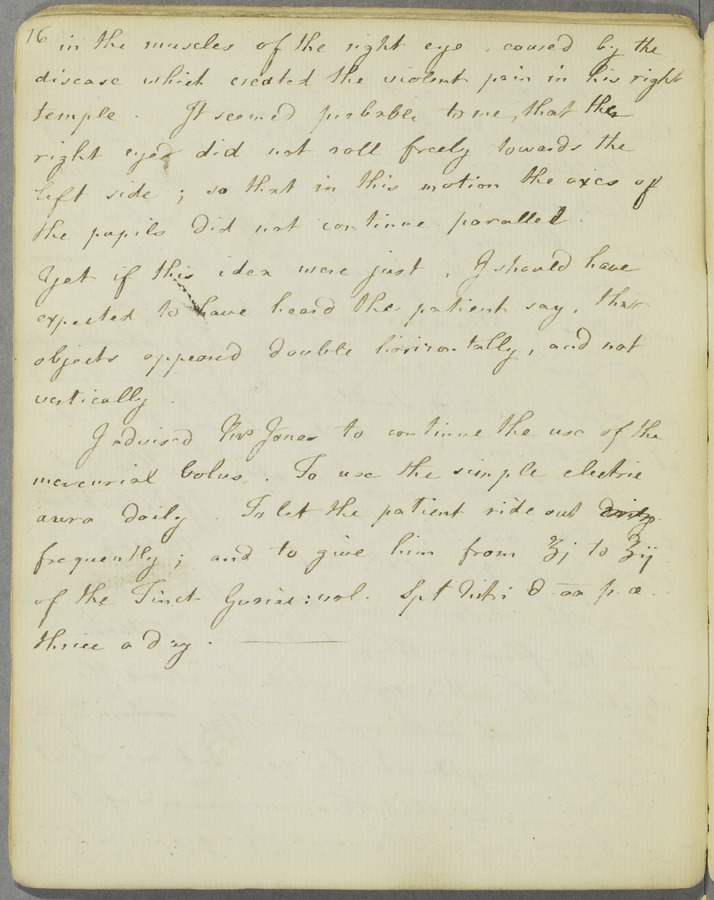 16
in the muscles of the right eye, caused by the
disease which created the violent pain in his right
temple. It seemed probable to me, that the
right eye did not roll freely towards the
left side; so that in this motion the axes of
the pupils did not continue parallel.
Yet if this idea were just, I should have
expected to have heard the patient say, that
objects appeared double horizontally, and not
vertically.
I advised Mrs Jones to continue the use of the
mercurial bolus. To use the simple electric
aura daily. To let the patient ride out
frequently; and to give him from ʒj to ʒij
of the Tinct Guaiac: vol. Spt Nitri d āā p. æ.
thrice a day.